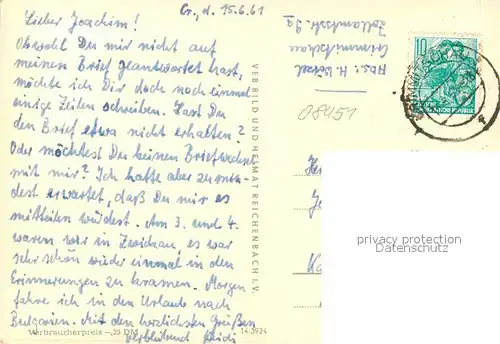 Cr., d. 15.6.61
Lieber Joachim!
Obwohl Du mir nicht auf
meinen Brief geantwortet hast,
möchte ich Dir doch noch einmal
einige Zeilen schreiben. Hast Du
den Brief etwa nicht erhalten?
Oder möchtest Du keinen Briefwechsel
mit mir? Ich hatte aber zumin-
dest erwartet, daß Du mir es
mitteilen würdest. Am 3. und 4.
waren wir in Zwickau, es war
sehr schön wieder einmal in den
Erinnerungen zu kramen. Morgen
fahre ich in den Urlaub nach
Bulgarien. Mit den herzlichsten Grüßen
verbleibend Heidi
Verbraucherpreis –,25 DM
14/3924
VEB BILD UND HEIMAT REICHENBACH I. V.
Abs.: H.
Crimmitschau
Zollamtsstr. 9a
08451
10
privacy protection
Datenschutz